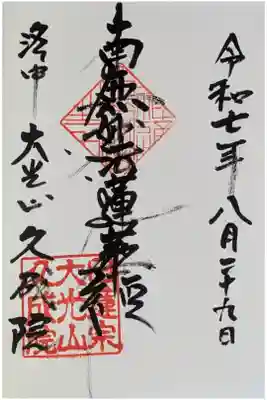 令和七年八月二十九日
南無妙法蓮華経
洛中 大光山 久成院
日蓮宗
大光山
久成院